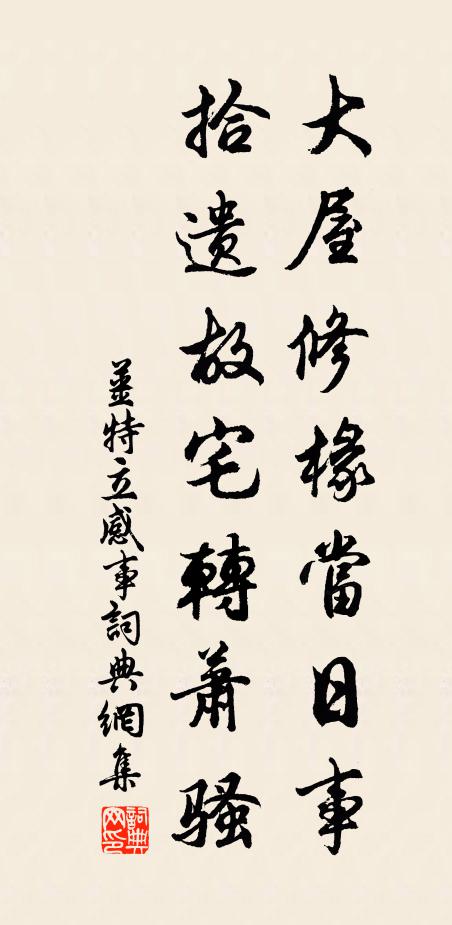 大屋修椽當日事
拾遺故宅轉蕭騷
薑特立感事詞典網集
詞典網印